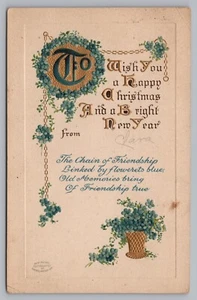 To Wish You
a Happy
Christmas
And a Bright
New Year
from
The Chain of Friendship
Linked by flowerets blue
Old Memories bring
Of Friendship true